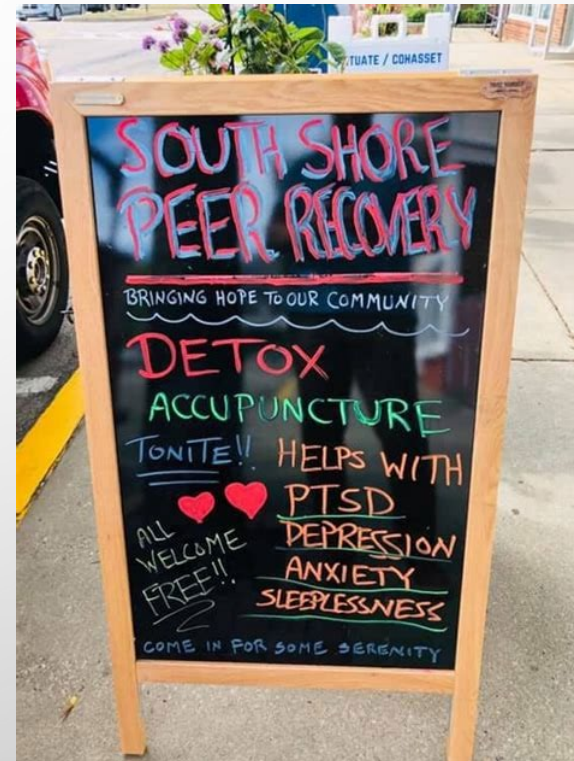 TUATE / COHASSET
SOUTH SHORE
PEER RECOVERY
BRINGING HOPE TO OUR COMMUNITY
DETOX
ACCUPUNCTURE
TONITE!!
HELPS WITH
PTSD
DEPRESSION
ANXIETY
SLEEPLESSNESS
ALL
WELCOME
FREE!!
COME IN FOR SOME SERENITY